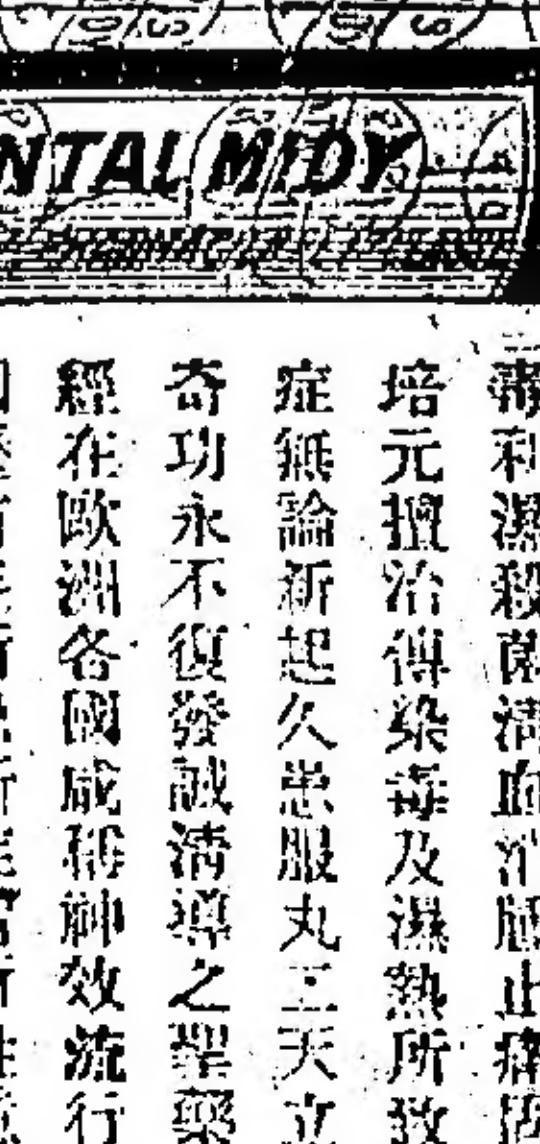 NTAL MIDY
毒利濕殺菌清血消腫止痛固
培元擅治傳染毒及濕熱所致
症無論新起久患服丸三天立
奇功永不復發誠清導之聖藥
經在歐洲各國咸稱神效流行